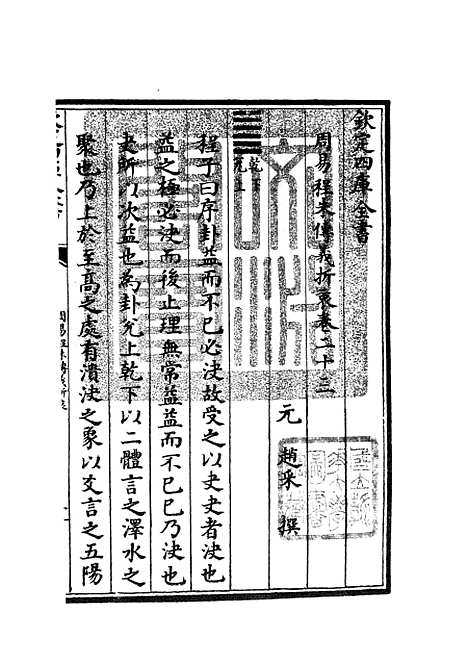 欽定四庫全書
周易程朱傳義折衷卷二十三
元 趙采 撰
乾下
兌上
程子曰序卦益而不已必決故受之以夬夬者決也
益之極必決而後止理無常益益而不已已乃決也
夬所以次益也為卦兌上乾下以二體言之澤水之
聚也乃上於至高之處有潰決之象以爻言之五陽
周易程朱傳義折衷